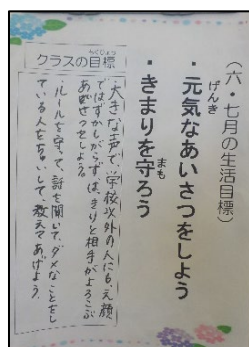 （六・七月の生活目標）
げんき
・元気なあいさつをしよう
まも
・きまりを守ろう
もくひょう
クラスの目標
・大きな声で、学校以外の人にも、元顔
ではずかしがらず、はきはきと相手がよろこぶ
あいさつをしよう。
・ルールを守って、話を聞いて、ダメなことをし
ている人をちゅういして、教えてあげよう。